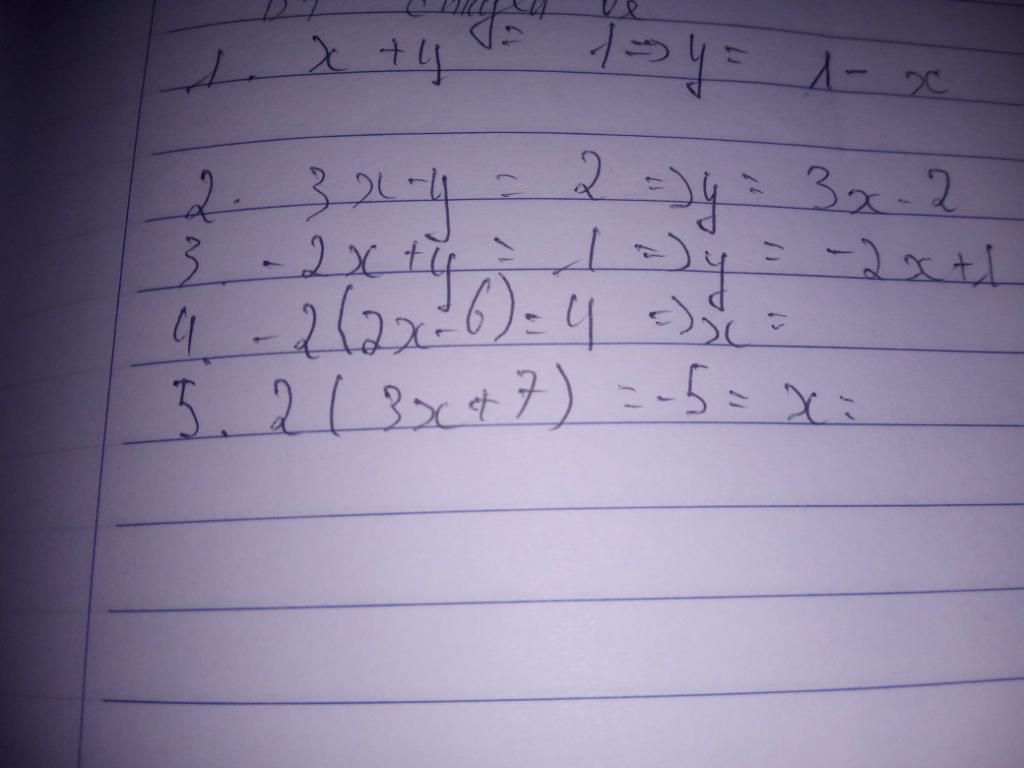 1. x + y = 1 => y = 1 - x
2. 3x - y = 2 => y = 3x - 2
3 - 2x + y = 1 => y = -2x + 1
4. - 2(2x - 6) = 4 => x =
5. 2(3x + 7) = -5 = x =